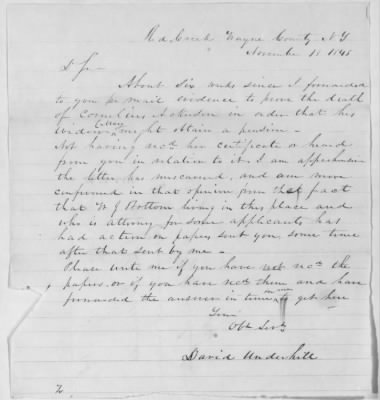 Red Creek Wayne County N Y
November 18 1845
D Sir
About Six weeks since I forwarded
to you pr mail evidence to prove the death
of Cornelius in order that his
Widow might obtain a pension -
Not having recd her certificate or heard
from you in relation to it, I am apprehensive
the letter has miscarried, and am more
confirmed in that opinion from that fact
that W J Bottom living in this place and
who is attorney for some applicants has
had action on papers sent you some time
after that sent by me -
Please write me if you have not recd the
papers, or if you have recd them and have
forwarded the answer in time to get here
Your
Obt Servt
David Underhill